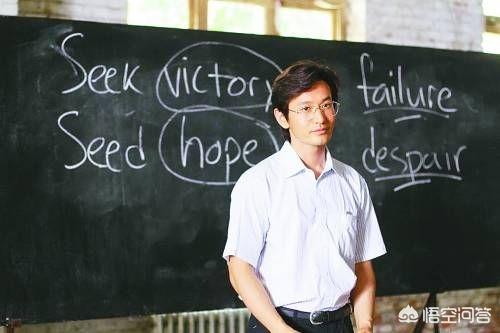 Seek victory failure
Seed hope despair
悟空问答